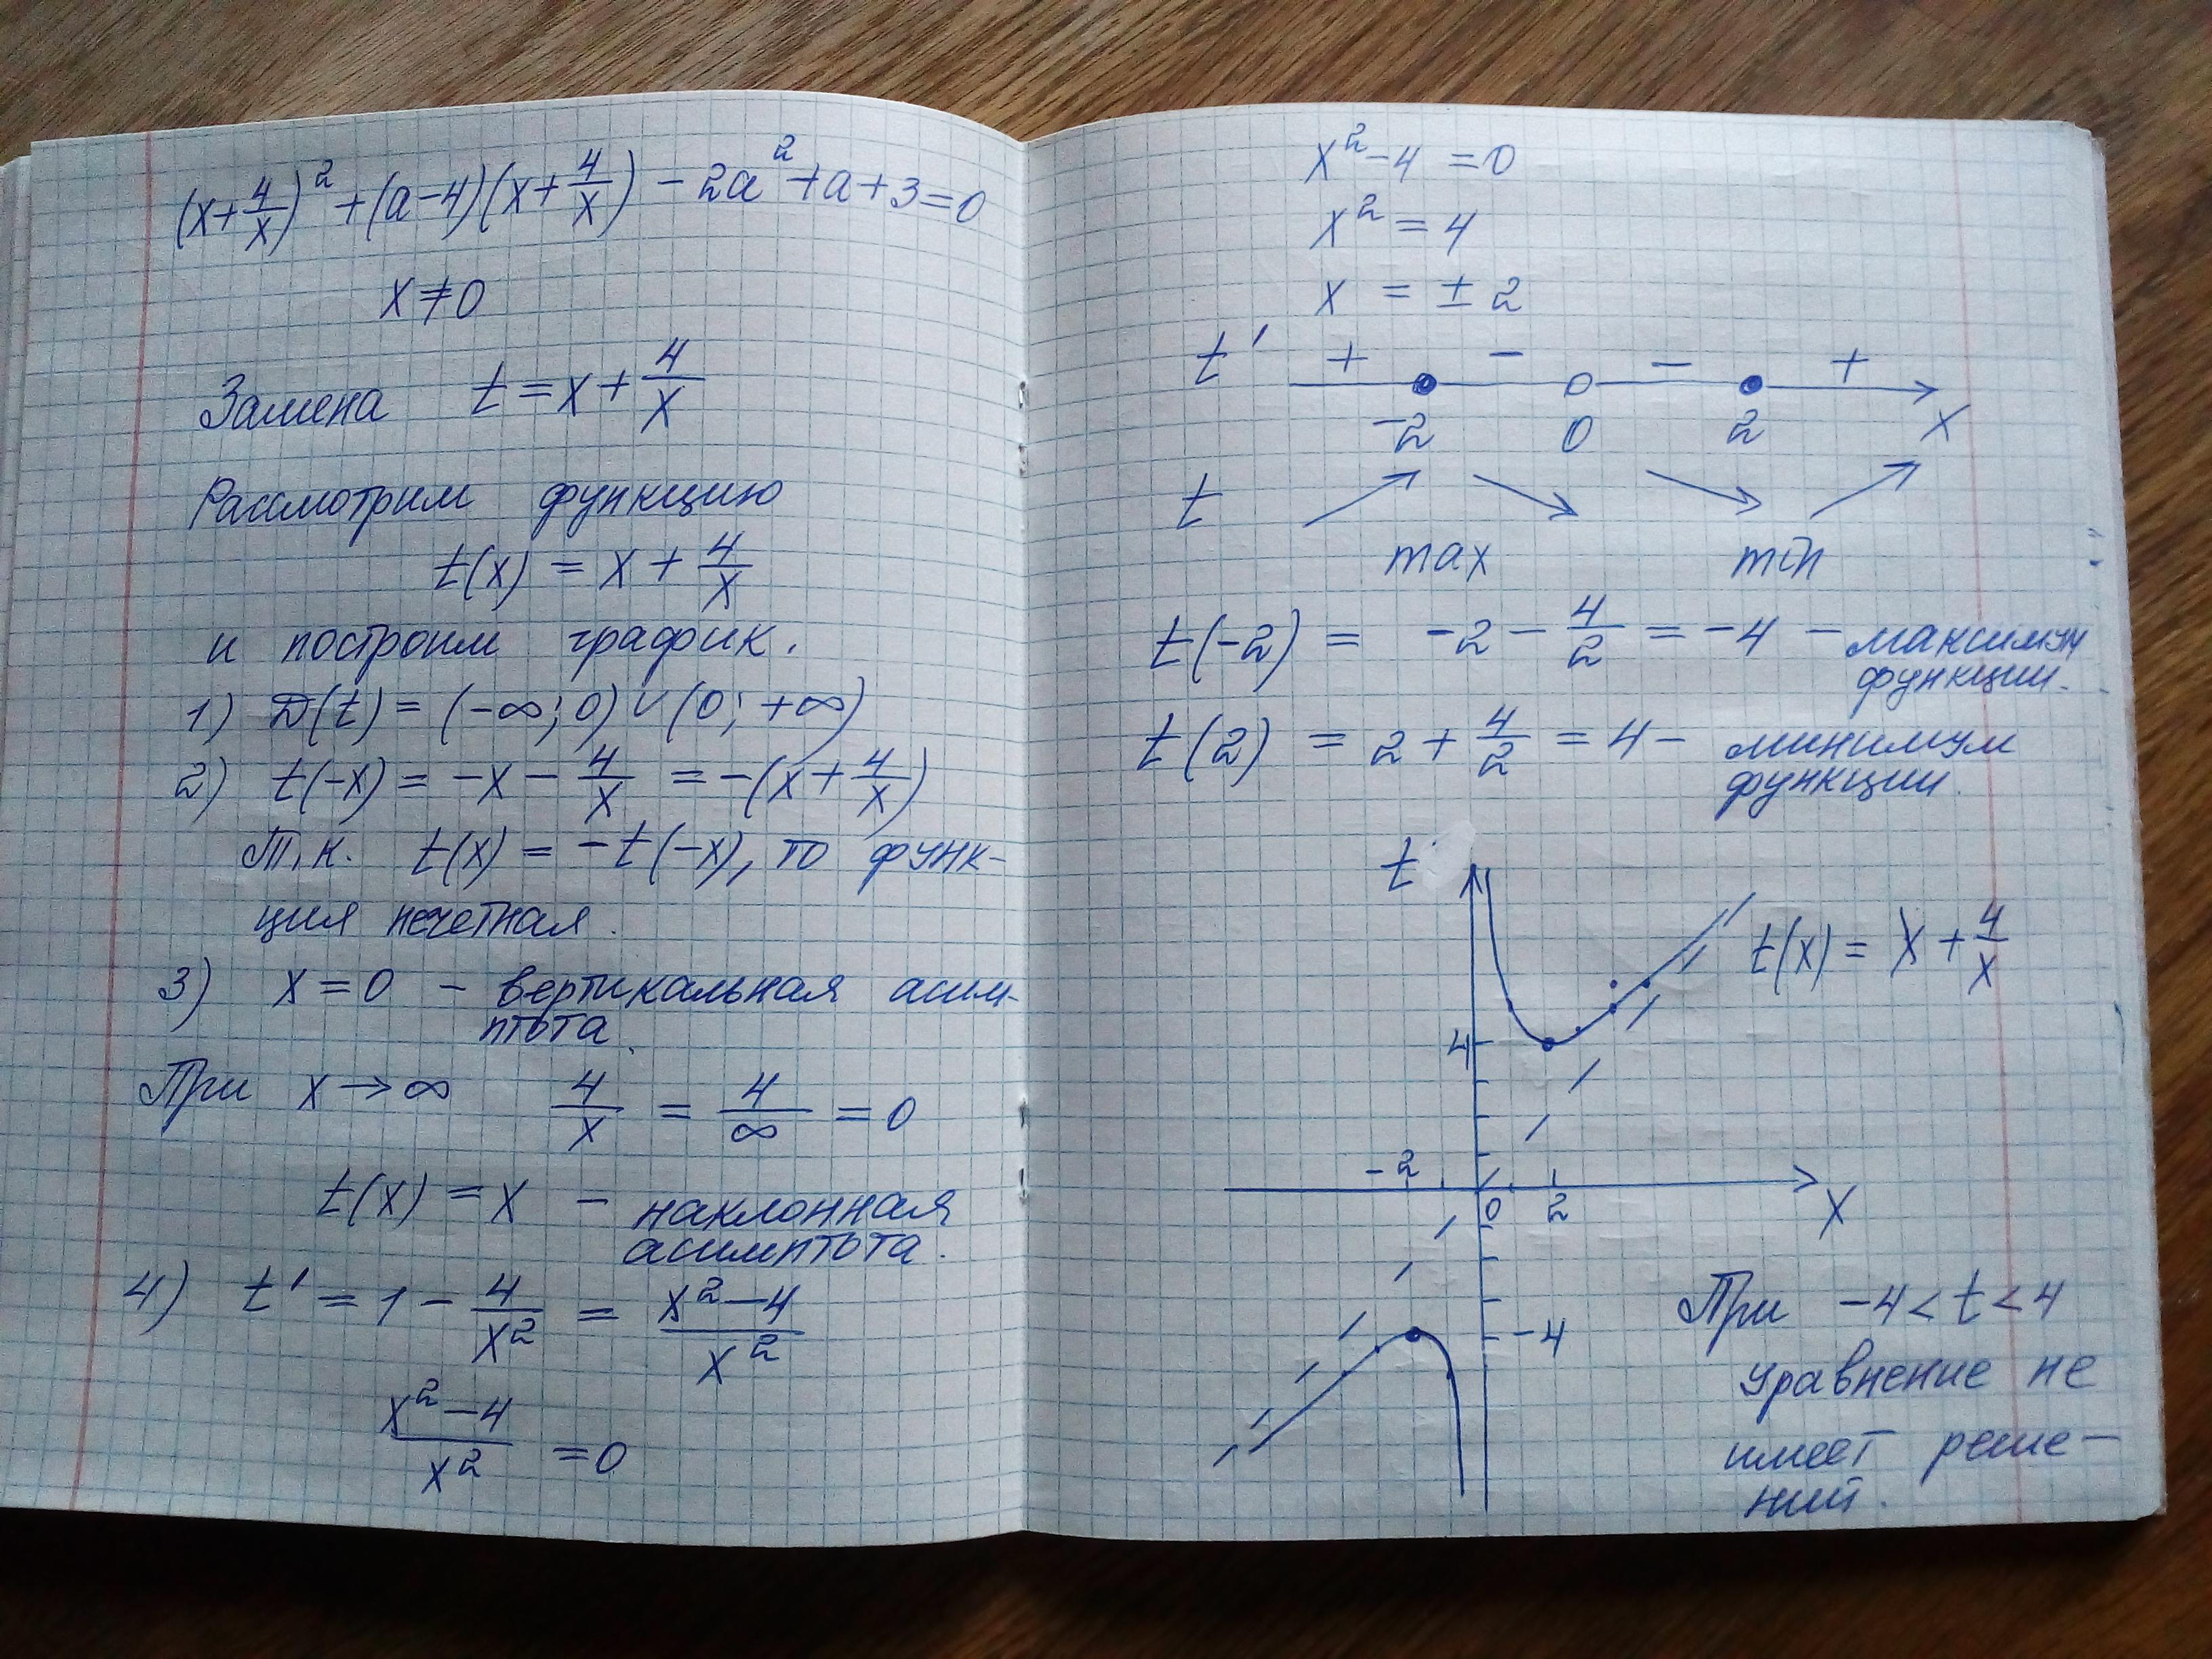 (x+4/x)² + (a-4)(x+4/x) - 2a² + a + 3 = 0
x ≠ 0
Замена t = x + 4/x
Рассмотрим функцию
t(x) = x + 4/x
и построим график.
1) D(t) = (-∞; 0) ∪ (0; +∞)
2) t(-x) = -x - 4/x = -(x + 4/x)
Т.к. t(x) = -t(-x), то функ-
ция нечетная.
3) x = 0 - вертикальная асим-
птота.
При x → ∞ 4/x = 4/∞ = 0
t(x) = x - наклонная
асимптота.
4) t' = 1 - 4/x² = (x²-4)/x²
(x²-4)/x² = 0
x² - 4 = 0
x² = 4
x = ± 2
t' + - - +
-2 0 2 x
t
max min
t(-2) = -2 - 4/2 = -4 - максимум
функции.
t(2) = 2 + 4/2 = 4 - минимум
функции.
t
t(x) = x + 4/x
4
-2 0 2 x
-4
При -4 < t < 4
уравнение не
имеет реше-
ний.